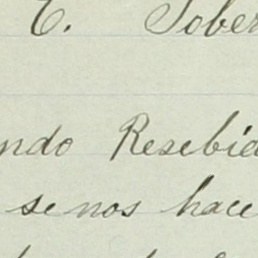 E. Sober
ndo Resebid
se nos hace